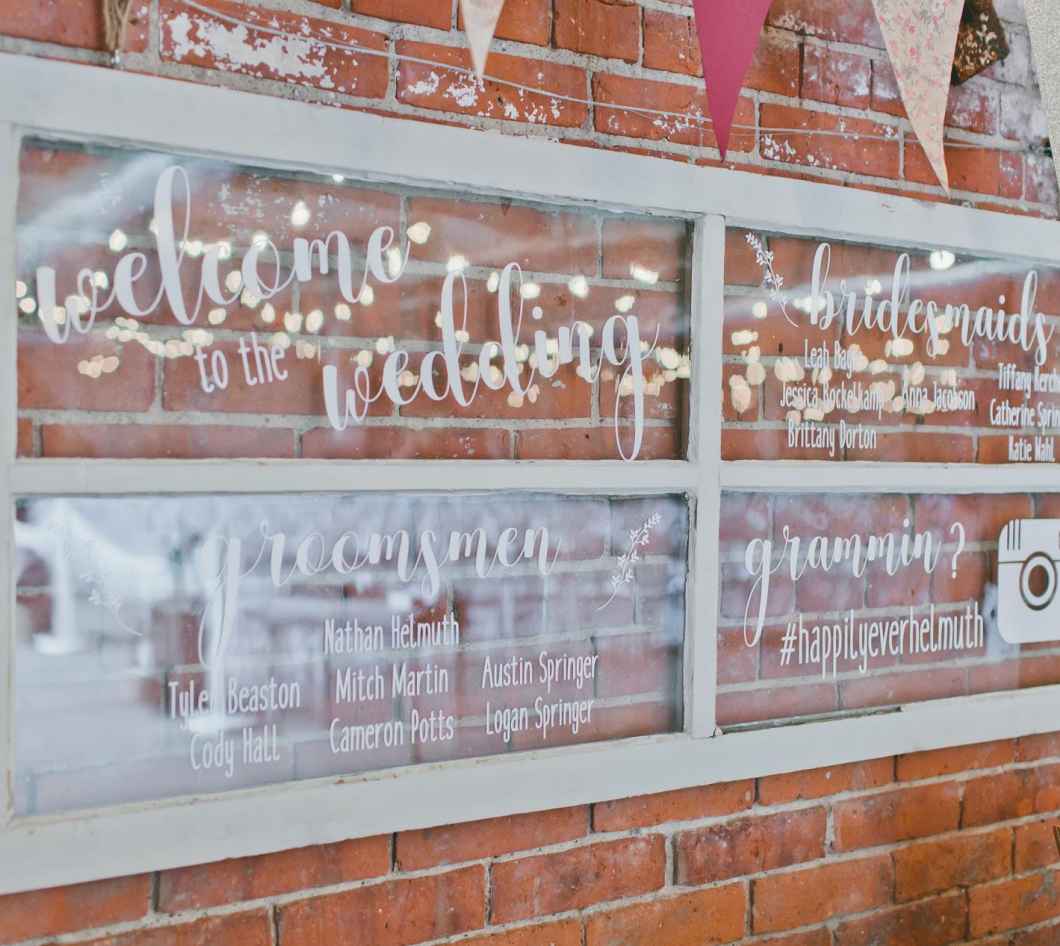 welcome
to the
wedding
bridesmaids
Leah
Jessica Anna Jacobson
Brittany Dorton
Tiffany
Catherine
Katie Wahl
groomsmen
Nathan Helmuth
Tyler Beaston Mitch Martin Austin Springer
Cody Hall Cameron Potts Logan Springer
grammin?
#happilyeverhelmuth